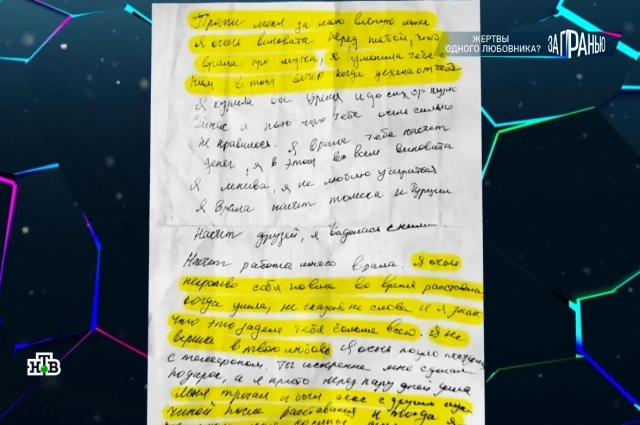 ЖЕРТВЫ
ОДНОГО ЛЮБОВНИКА?
ЗАГРАНЬЮ
Прости меня за мою вечную
Я очень виновата перед тобой, что
врала про мужа, я изменила тебе с
ним в тот вечер когда уехала от тебя
Я курила все время и до сих пор курю
я пью что тебе очень сильно
не нравилось. Я врала тебе насчет
денег, я в этом во всем виновата
Я ленива, я не люблю убираться
Я врала насчет и Турции
Насчет друзей, я виделась с ними.
Насчет работа много врала. Я очень
некрасиво себя повела во время расставания
когда ушла, не сказав не слова и я знаю
что это задело тебя больше всего. Я не
верила в твою любовь Я очень подло
с телефоном. Ты искренне мне сделал
подарок, а я просто через пару дней ушла
Меня трогал и был секс с другим муж
чиной после расставания и тогда я
НТВ